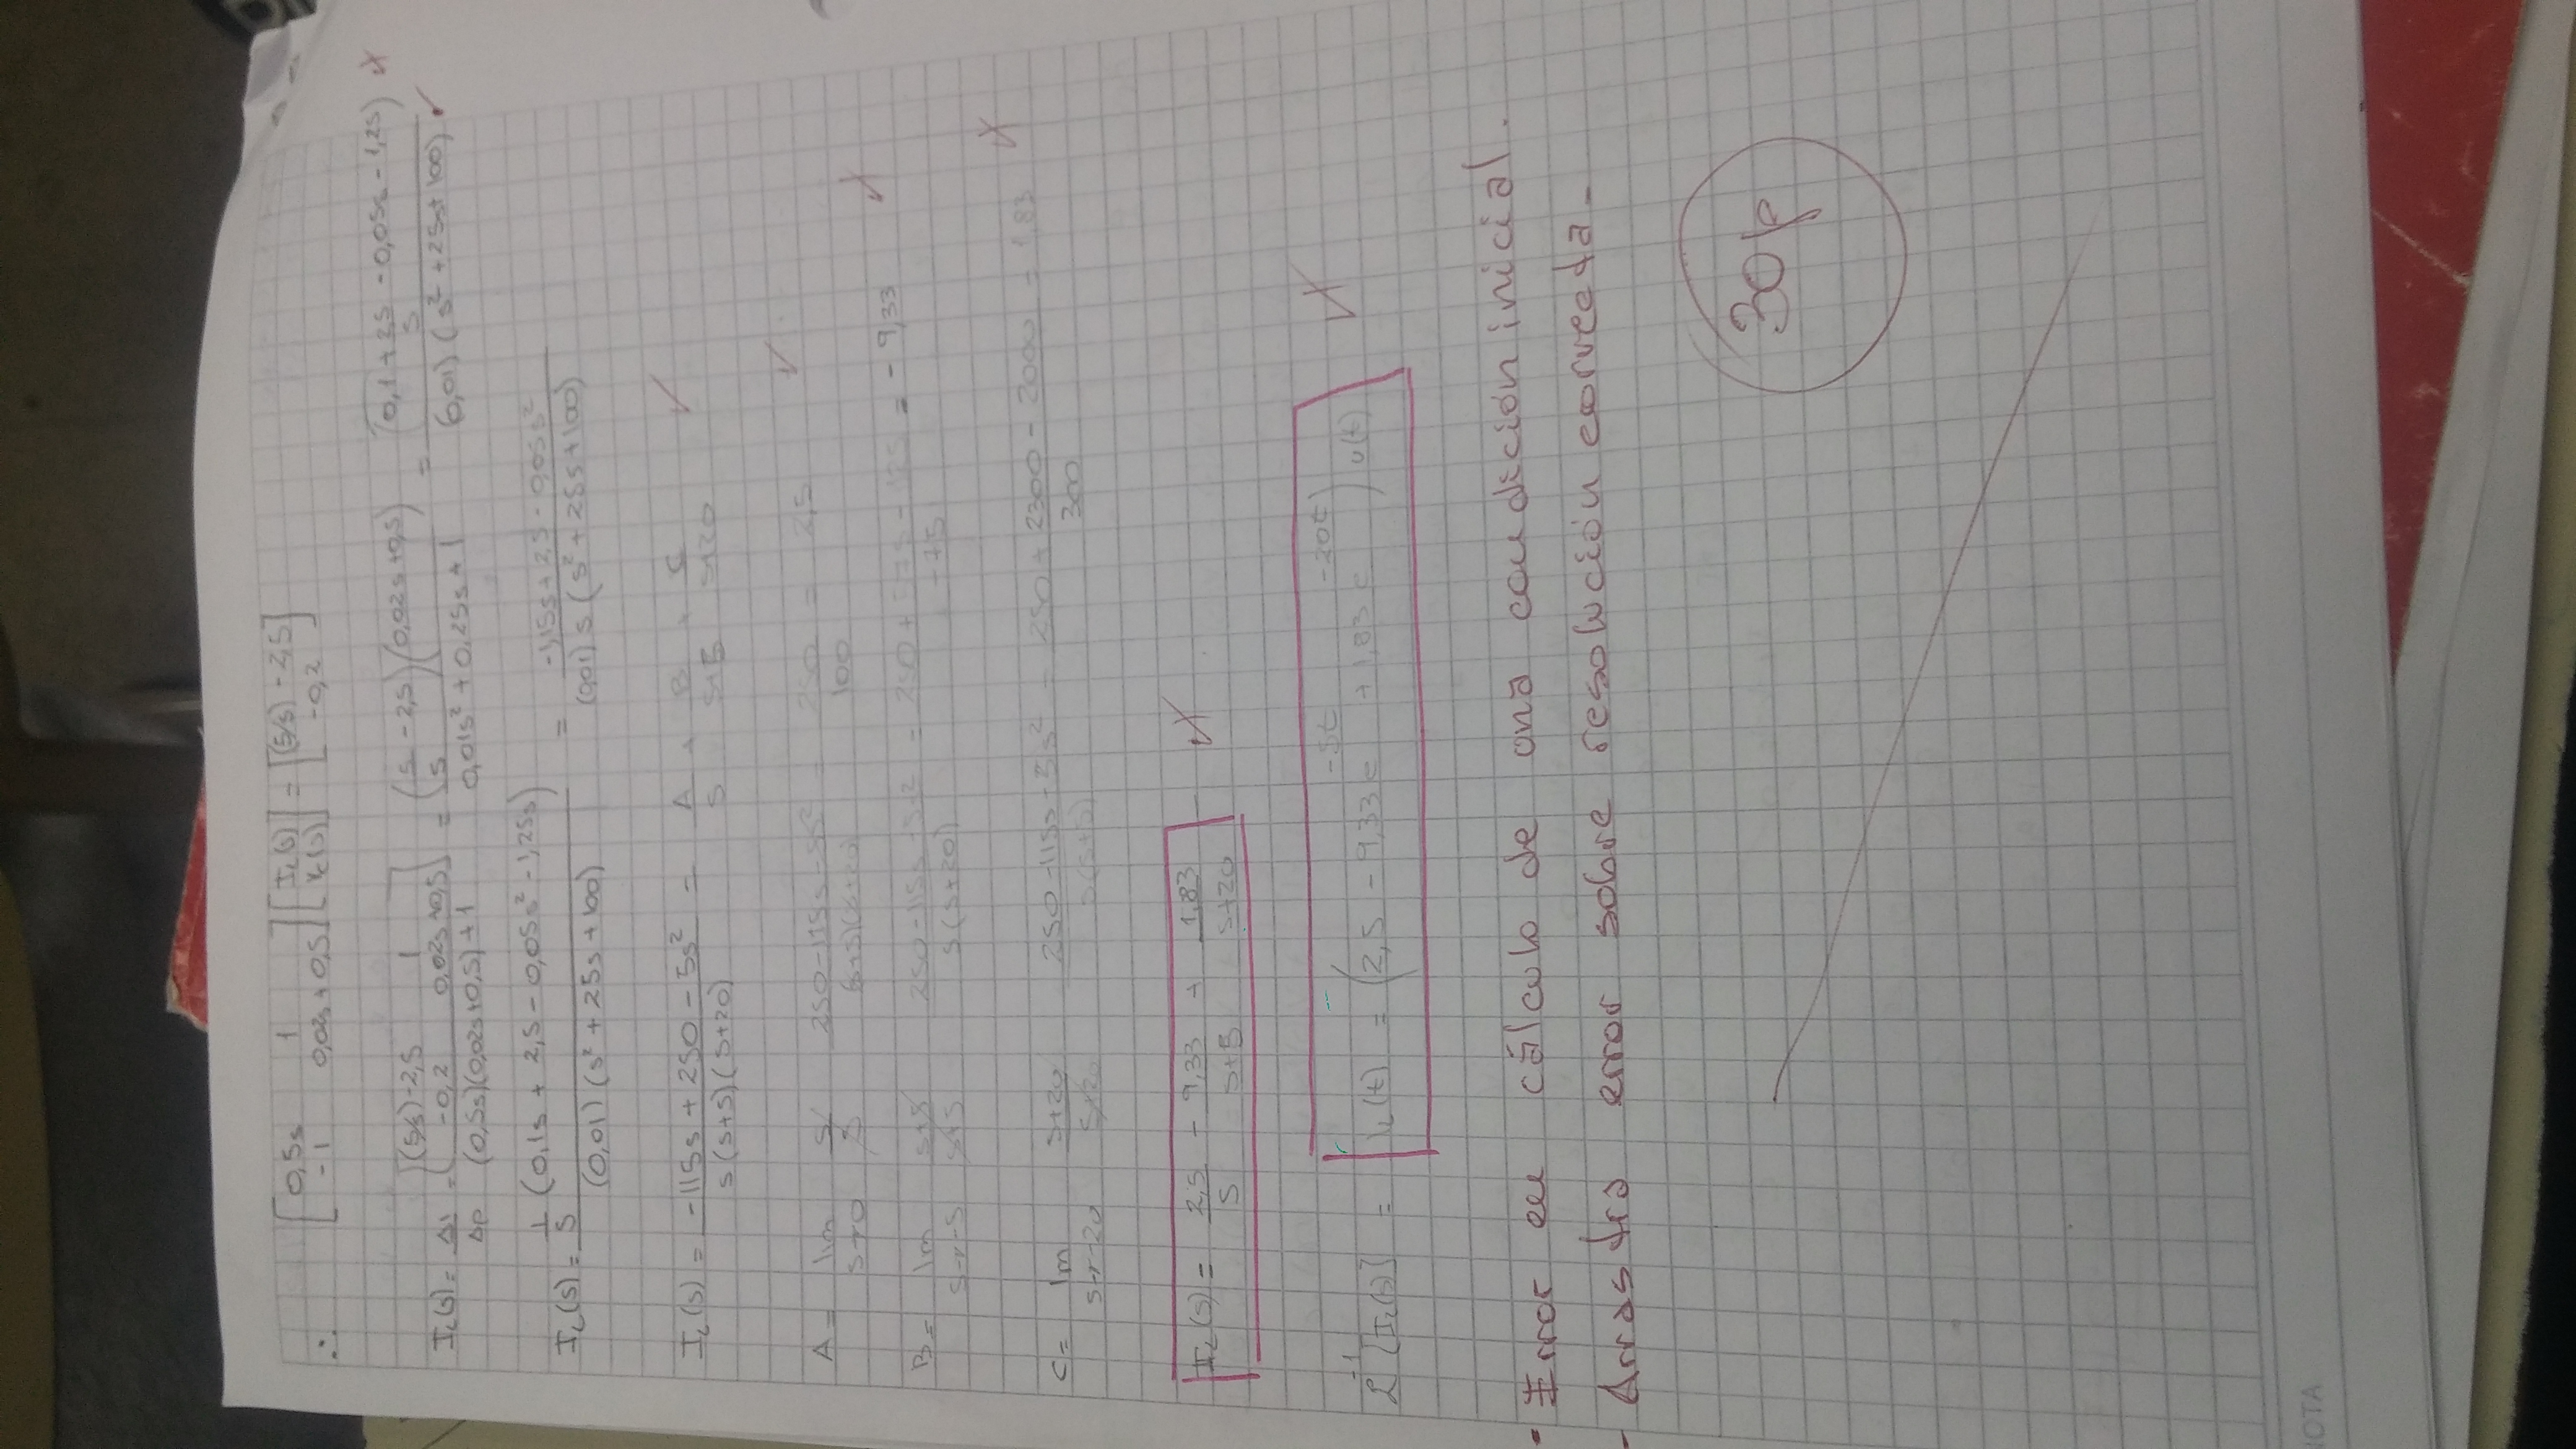 ∴ [0,5s 1; -1 0,02s+0,5] [I_L(s); V_c(s)] = [(5/s) - 2,5; -0,2]
I_L(s) = Δ1/Δp = [(5/s)-2,5 1; -0,2 0,02s+0,5] / (0,5s)(0,02s+0,5)+1 = (5/s - 2,5)(0,02s+0,5) / 0,01s² + 0,25s + 1 = (0,1 + 2,5/s - 0,05s - 1,25) / (0,01)(s² + 25s + 100)
I_L(s) = 1/s (0,1s + 2,5 - 0,05s² - 1,25s) / (0,01)(s² + 25s + 100) = -1,15s + 2,5 - 0,05s² / (0,01) s (s² + 25s + 100)
I_L(s) = -115s + 250 - 5s² / s(s+5)(s+20) = A/s + B/s+5 + C/s+20
A = lim s→0 s/s 250-115s-5s² / (s+5)(s+20) = 250/100 = 2,5
B = lim s→-5 s+5/s+5 250-115s-5s² / s(s+20) = 250 + 575 - 125 / -75 = -9,33
C = lim s→-20 s+20/s+20 250-115s-5s² / s(s+5) = 250 + 2300 - 2000 / 300 = 1,83
I_L(s) = 2,5/s - 9,33/s+5 + 1,83/s+20
ℒ⁻¹[I_L(s)] = i_L(t) = (2,5 - 9,33 e^-5t + 1,83 e^-20t) u(t)
- Error en cálculo de una condición inicial.
- Arrastra error sobre resolución correcta.
30p
NOTA